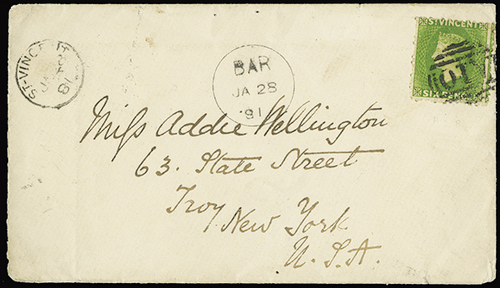 ST. VINCENT
ST-VINCENT
BAR
JA 28
81
JA
81
SIX PENCE
Miss Addie Wellington
63. State Street
Troy New York
U.S.A.